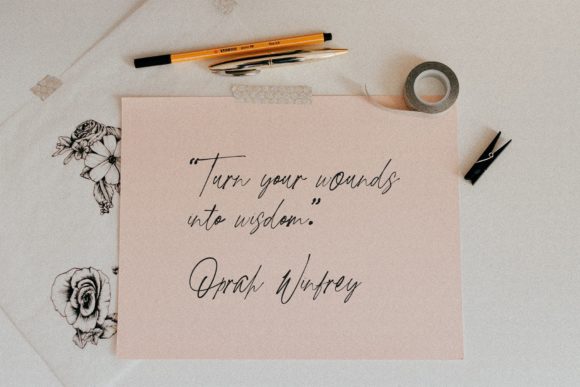 STABILO
“Turn your wounds
into wisdom.”
Oprah Winfrey